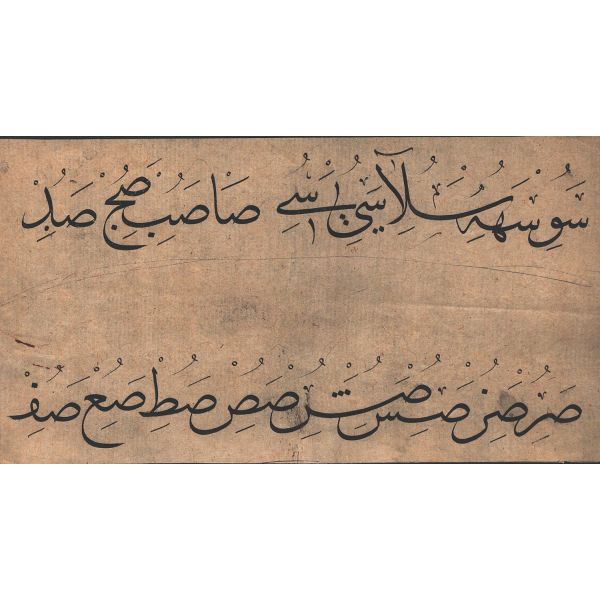 سو سه سلا سي سے صا صب صج صد
صر صز صس صش صص صط صع صف